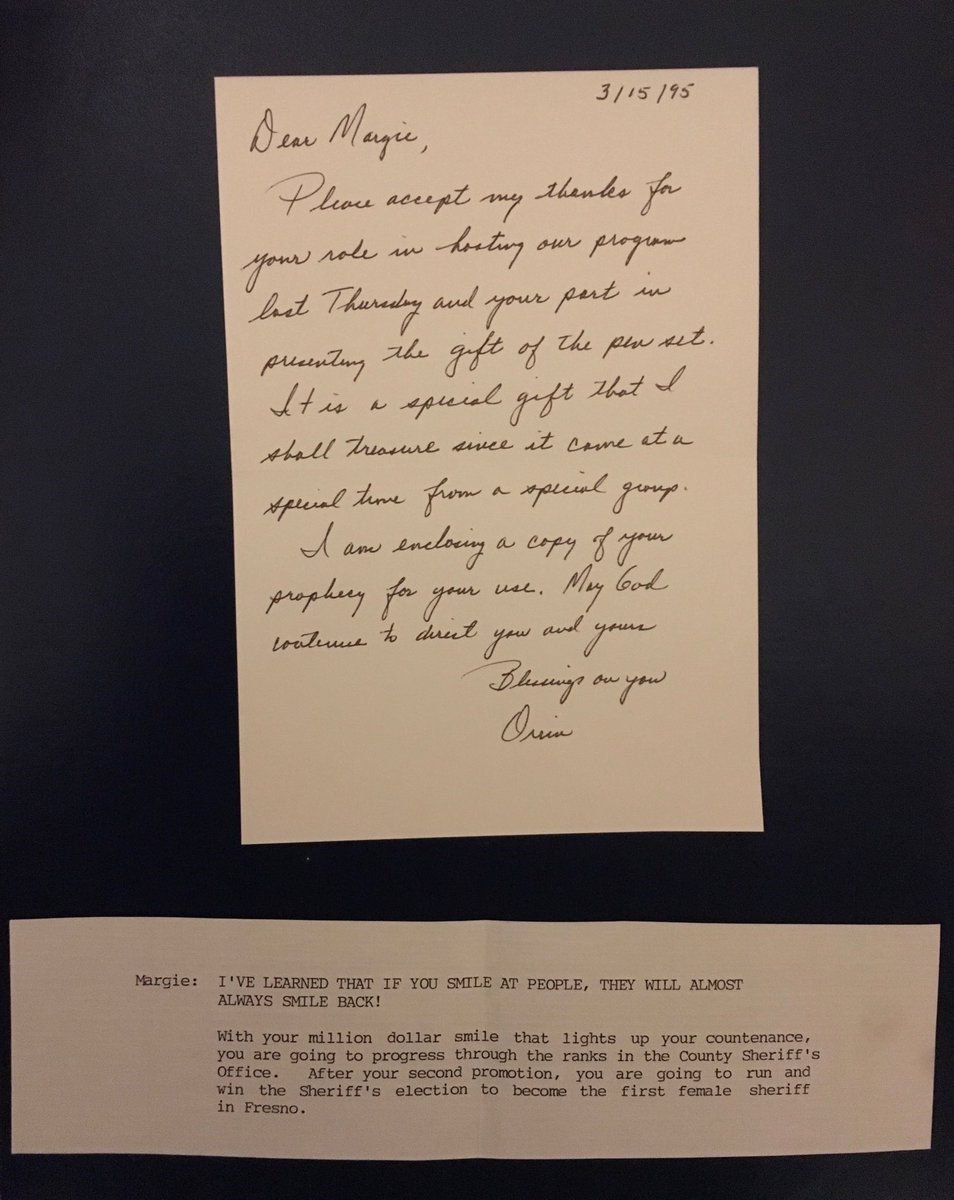 3/15/95
Dear Margie,
Please accept my thanks for
your role in hosting our program
last Thursday and your part in
presenting the gift of the pen set.
It is a special gift that I
shall treasure since it came at a
special time from a special group.
I am enclosing a copy of your
prophecy for your use. May God
continue to direct you and yours
Blessings on you
Orrin
Margie: I'VE LEARNED THAT IF YOU SMILE AT PEOPLE, THEY WILL ALMOST
ALWAYS SMILE BACK!
With your million dollar smile that lights up your countenance,
you are going to progress through the ranks in the County Sheriff's
Office. After your second promotion, you are going to run and
win the Sheriff's election to become the first female sheriff
in Fresno.